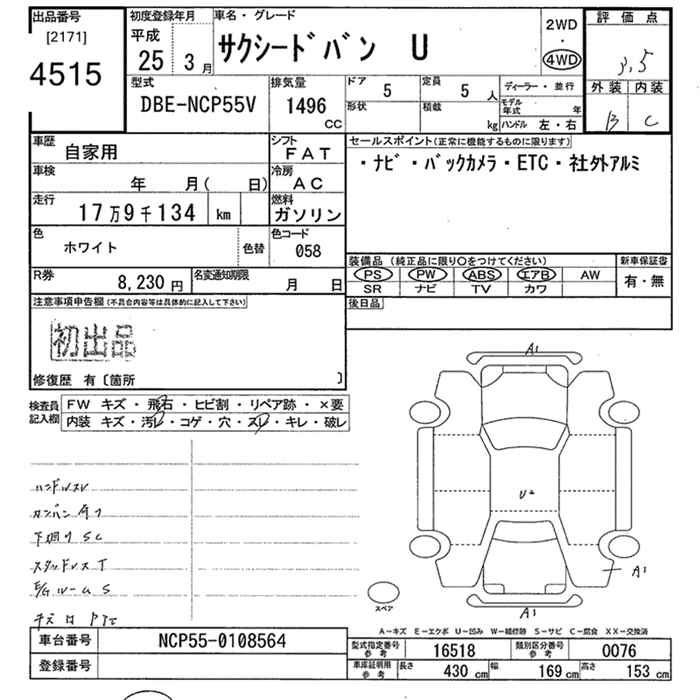 出品番号 初度登録年月 車名・グレード
[2171] 平成 2WD 評価点
4515 25年 3月 サクシードバン U ・ 3.5
4WD
型式 排気量 ドア 定員 ディーラー・並行 外装 内装
DBE-NCP55V 1496 CC 5 5人 モデル年式 年 B C
形状 積載 kg ハンドル 左・右
車歴 自家用 シフト FAT セールスポイント(正常に機能するものに限ります)
車検 年 月( 日) 冷房 AC ・ナビ・バックカメラ・ETC・社外アルミ
走行 17万9千134 km 燃料 ガソリン
色 ホワイト 色替 色コード 058
装備品 (純正品に限り〇をつけてください) 新車保証書
PS PW ABS エアB AW 有・無
R券 8,230円 名変通知期限 月 日 SR ナビ TV カワ
注意事項申告欄(不具合内容等は具体的に記入して下さい) 後日品
初出品
修復歴 有〔箇所 〕
A1
検査員記入欄 FW キズ・飛石・ヒビ割・リペア跡・×要
内装 キズ・汚レ・コゲ・穴・スレ・キレ・破レ
ハンドルスレ
U2
下廻りSC
A1
E/GルームS
スペア
A1
A-キズ E-エクボ U-凹み W-補修跡 S-サビ C-腐食 XX-交換済
車台番号 NCP55-0108564 型式指定番号参考 16518 類別区分番号参考 0076
登録番号 車庫証明用参考 長さ 430 cm 幅 169 cm 高さ 153 cm